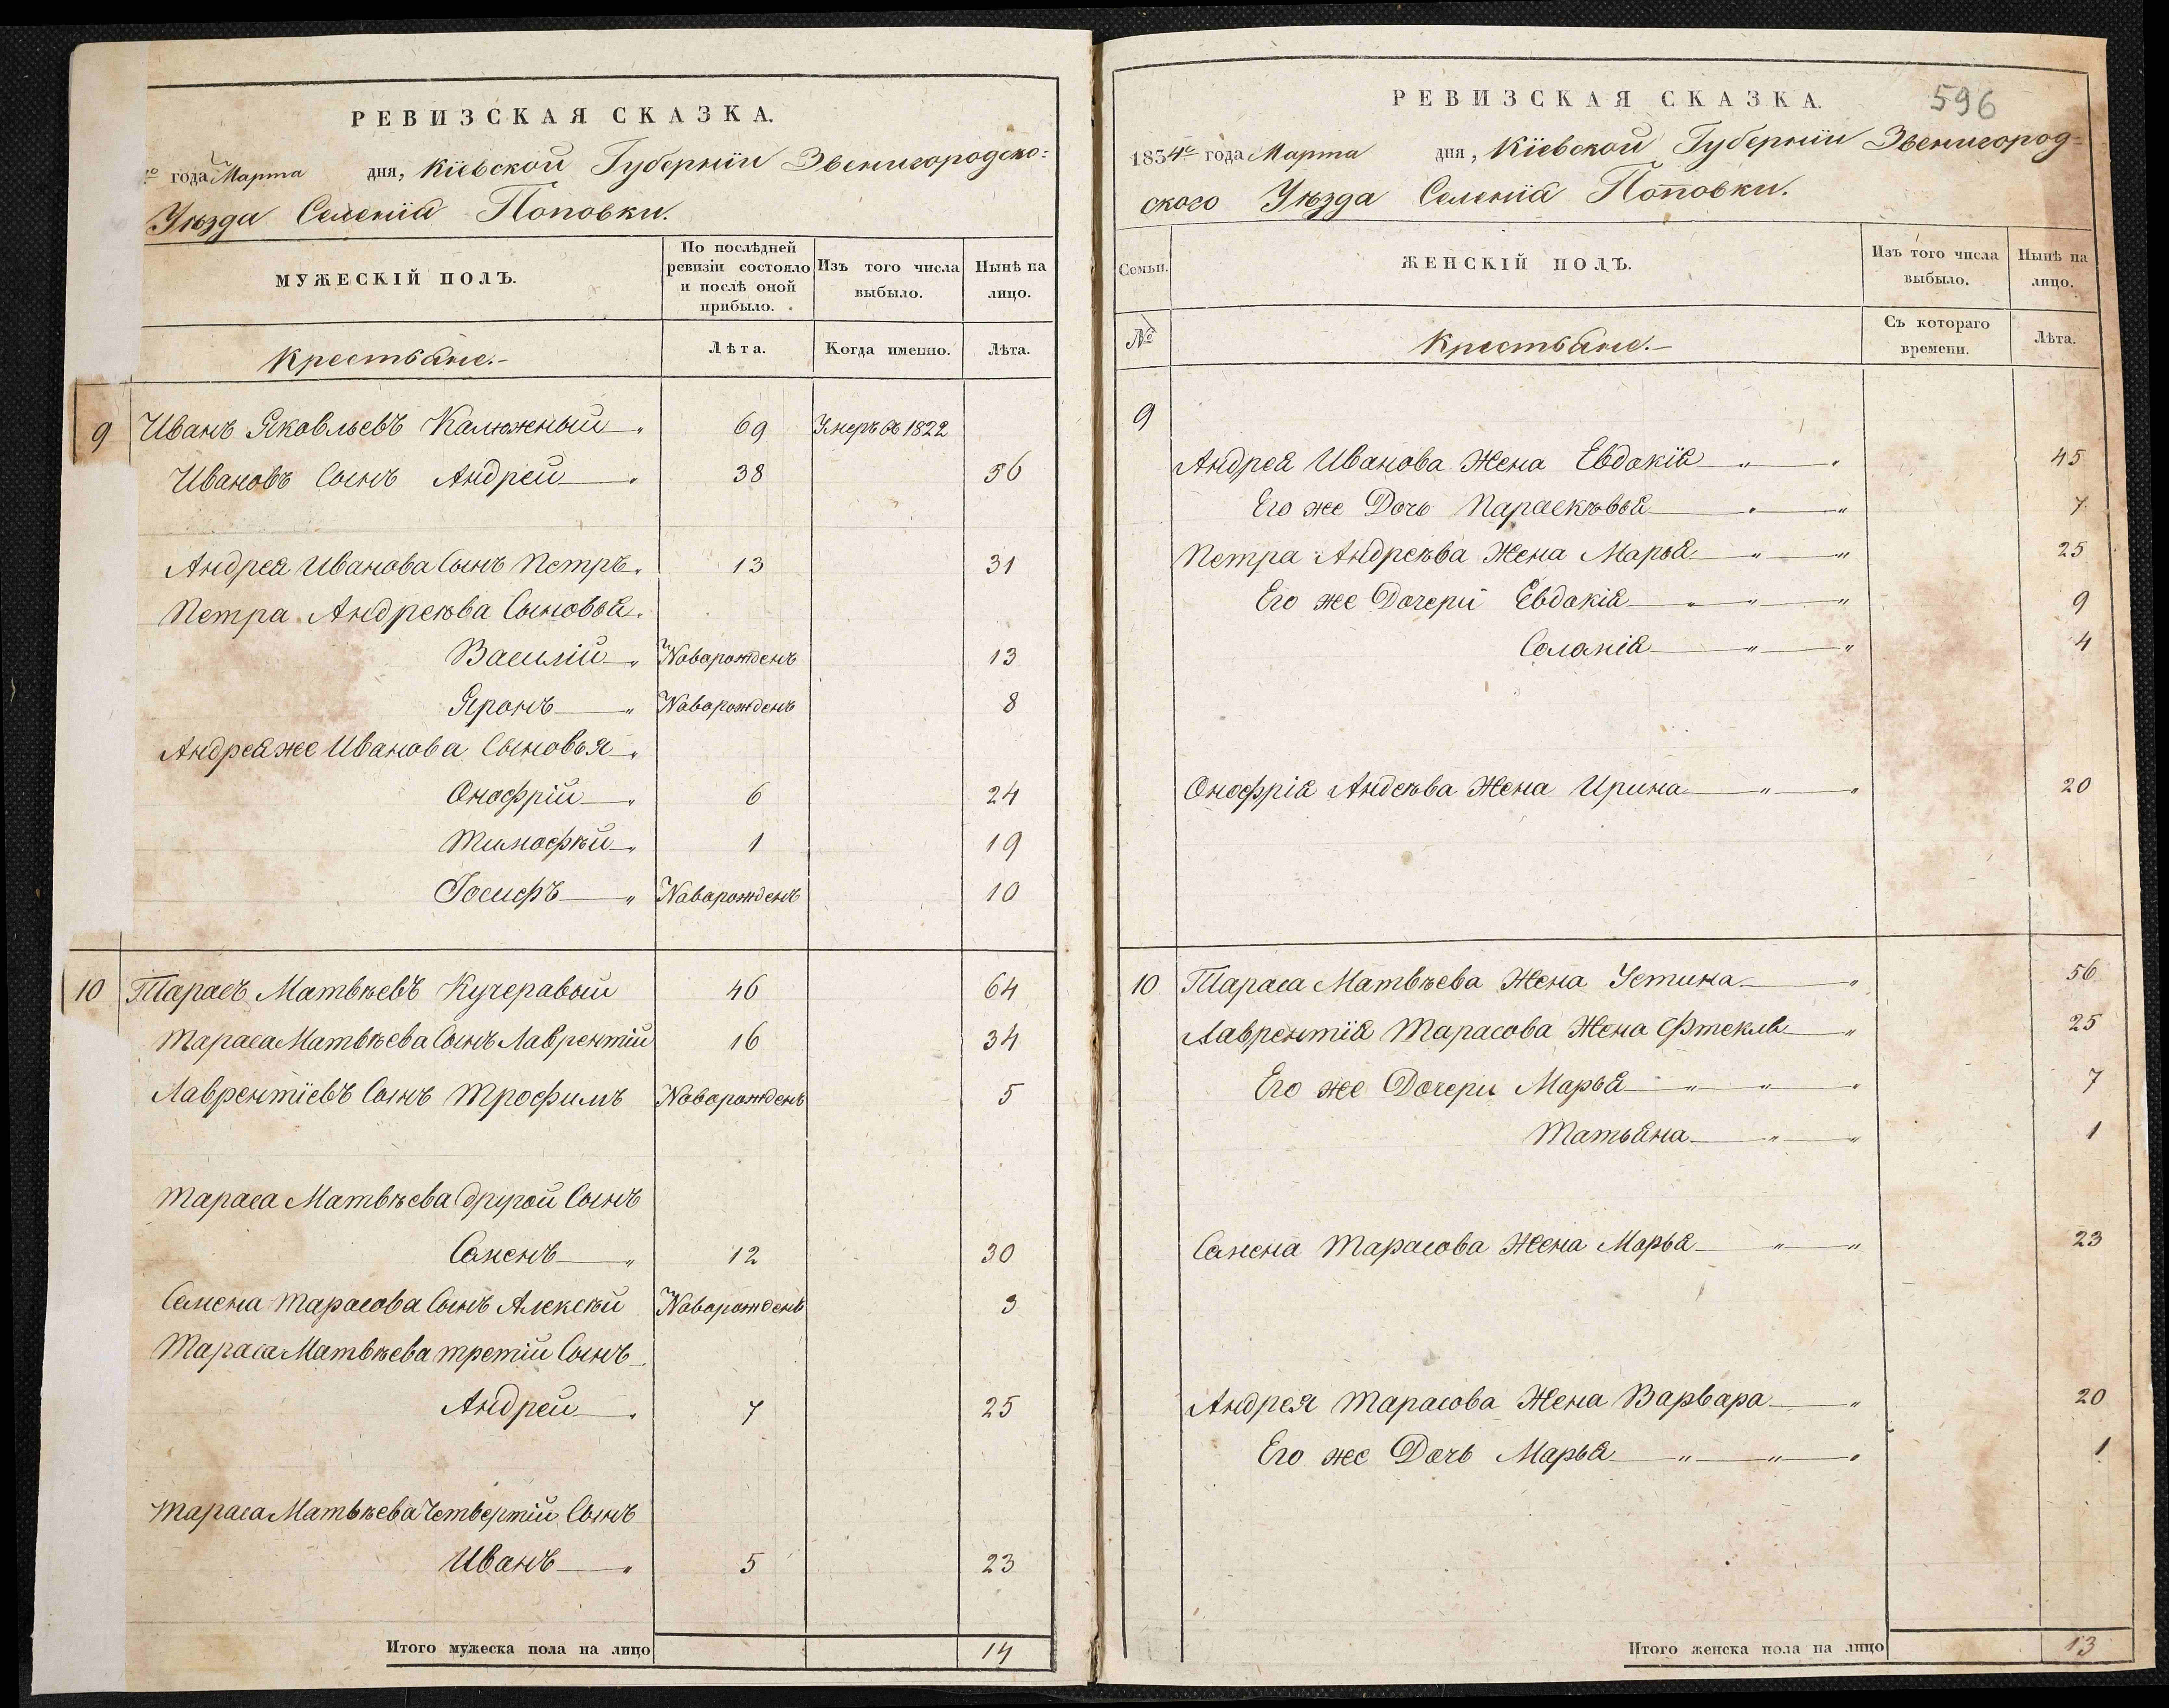 РЕВИЗСКАЯ СКАЗКА.
года Марта дня, Кіевской Губерніи Звенигородско=
Уѣзда Селенія Поповки.
МУЖЕСКІЙ ПОЛЪ.
По послѣдней
ревизіи состояло
и послѣ оной
прибыло.
Изъ того числа
выбыло.
Нынѣ на
лицо.
Крестьяне.-
Лѣта.
Когда именно.
Лѣта.
9 Иванъ Яковлевъ Калюжный 69 Умеръ въ 1822
Ивановъ Сынъ Андрей 38 56
Андрея Иванова Сынъ Петръ 13 31
Петра Андреѣва Сыновья
Василій Новорожденъ 13
Яронъ Новорожденъ 8
Андрея же Иванова Сыновья
Онофрій 6 24
Тимофѣй 1 19
Іосифъ Новорожденъ 10
10 Тарасъ Матвѣевъ Кучеравый 46 64
Тараса Матвѣева Сынъ Лаврентій 16 34
Лаврентіевъ Сынъ Трофимъ Новорожденъ 5
Тараса Матвѣева другой Сынъ
Семенъ 12 30
Семена Тарасова Сынъ Алексѣй Новорожденъ 3
Тараса Матвѣева третій Сынъ
Андрей 7 25
Тараса Матвѣева Четвертій Сынъ
Иванъ 5 23
Итого мужеска пола на лицо 14
РЕВИЗСКАЯ СКАЗКА. 596
1834го года Марта дня, Кіевской Губерніи Звенигород=
ского Уѣзда Селенія Поповки.
Семьи.
ЖЕНСКІЙ ПОЛЪ.
Изъ того числа
выбыло.
Нынѣ на
лицо.
№
Крестьяне.-
Съ котораго
времени.
Лѣта.
9
Андрея Иванова Жена Евдокія 45
Его же Дочь Параскѣвья 7
Петра Андреѣва Жена Марья 25
Его же Дочери Евдокія 9
Соломія 4
Онофрія Андеѣва Жена Ирина 20
10 Тараса Матвѣева Жена Устина 56
Лаврентія Тарасова Жена Фтекла 25
Его же Дочери Марья 7
Татьяна 1
Семена Тарасова Жена Марья 23
Андрея Тарасова Жена Варвара 20
Его же Дочь Марья 1
Итого женска пола на лицо 13